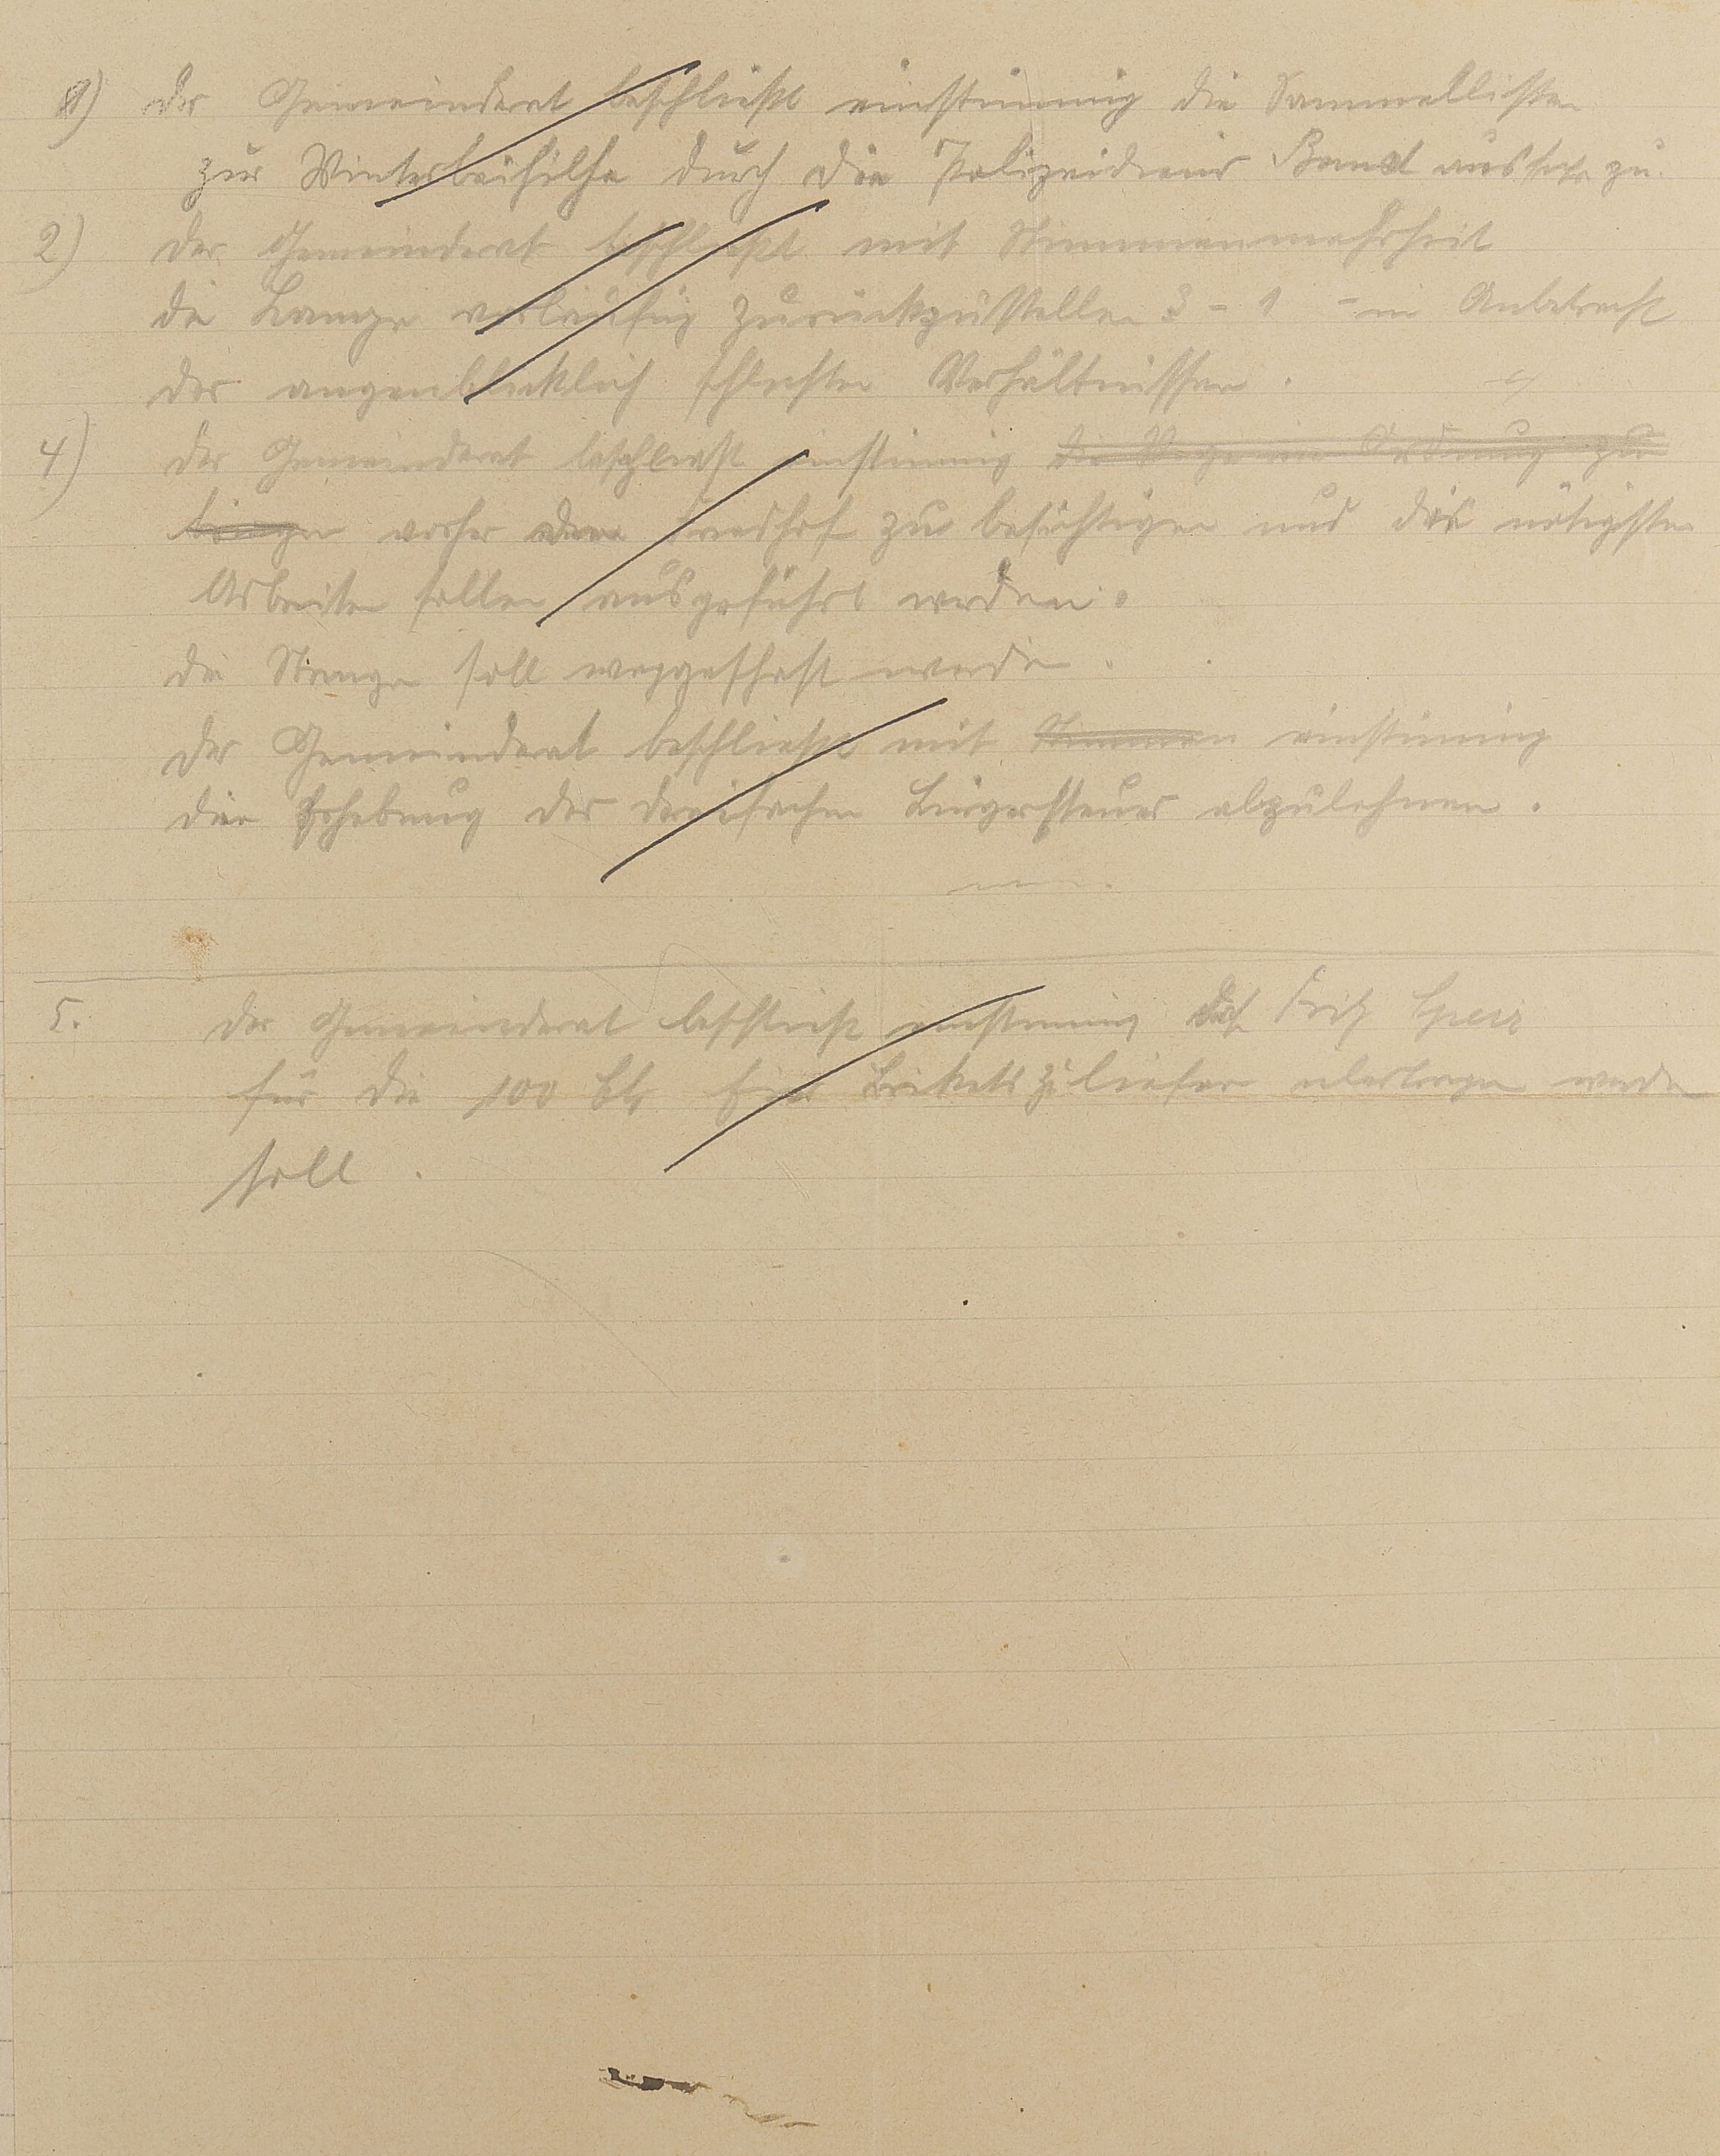 1) Der Gemeinderat beschließt einstimmig die Sammellisten
zur Winterbeihilfe durch die Polizeidiener
2) Der Gemeinderat beschließt mit Stimmenmehrheit
die Lampe vorläufig zurückzustellen 3 - 1 - in Anbetracht
der augenblicklich schlechten Verhältnissen.
4) Der Gemeinderat beschließt einstimmig die Wege in Ordnung zu
bringen vorher den Friedhof zu besichtigen und die nötigsten
Arbeiten sollen ausgeführt werden.
die Stange soll weggeschaft werden.
Der Gemeinderat beschließt mit Stimmen einstimmig
die Erhebung der dreifachen Bürgersteuer abzulehnen.
5. Der Gemeinderat beschließt einstimmig daß Fritz
für die 100 Ctr Brikets zu liefern übertragen werden
soll.